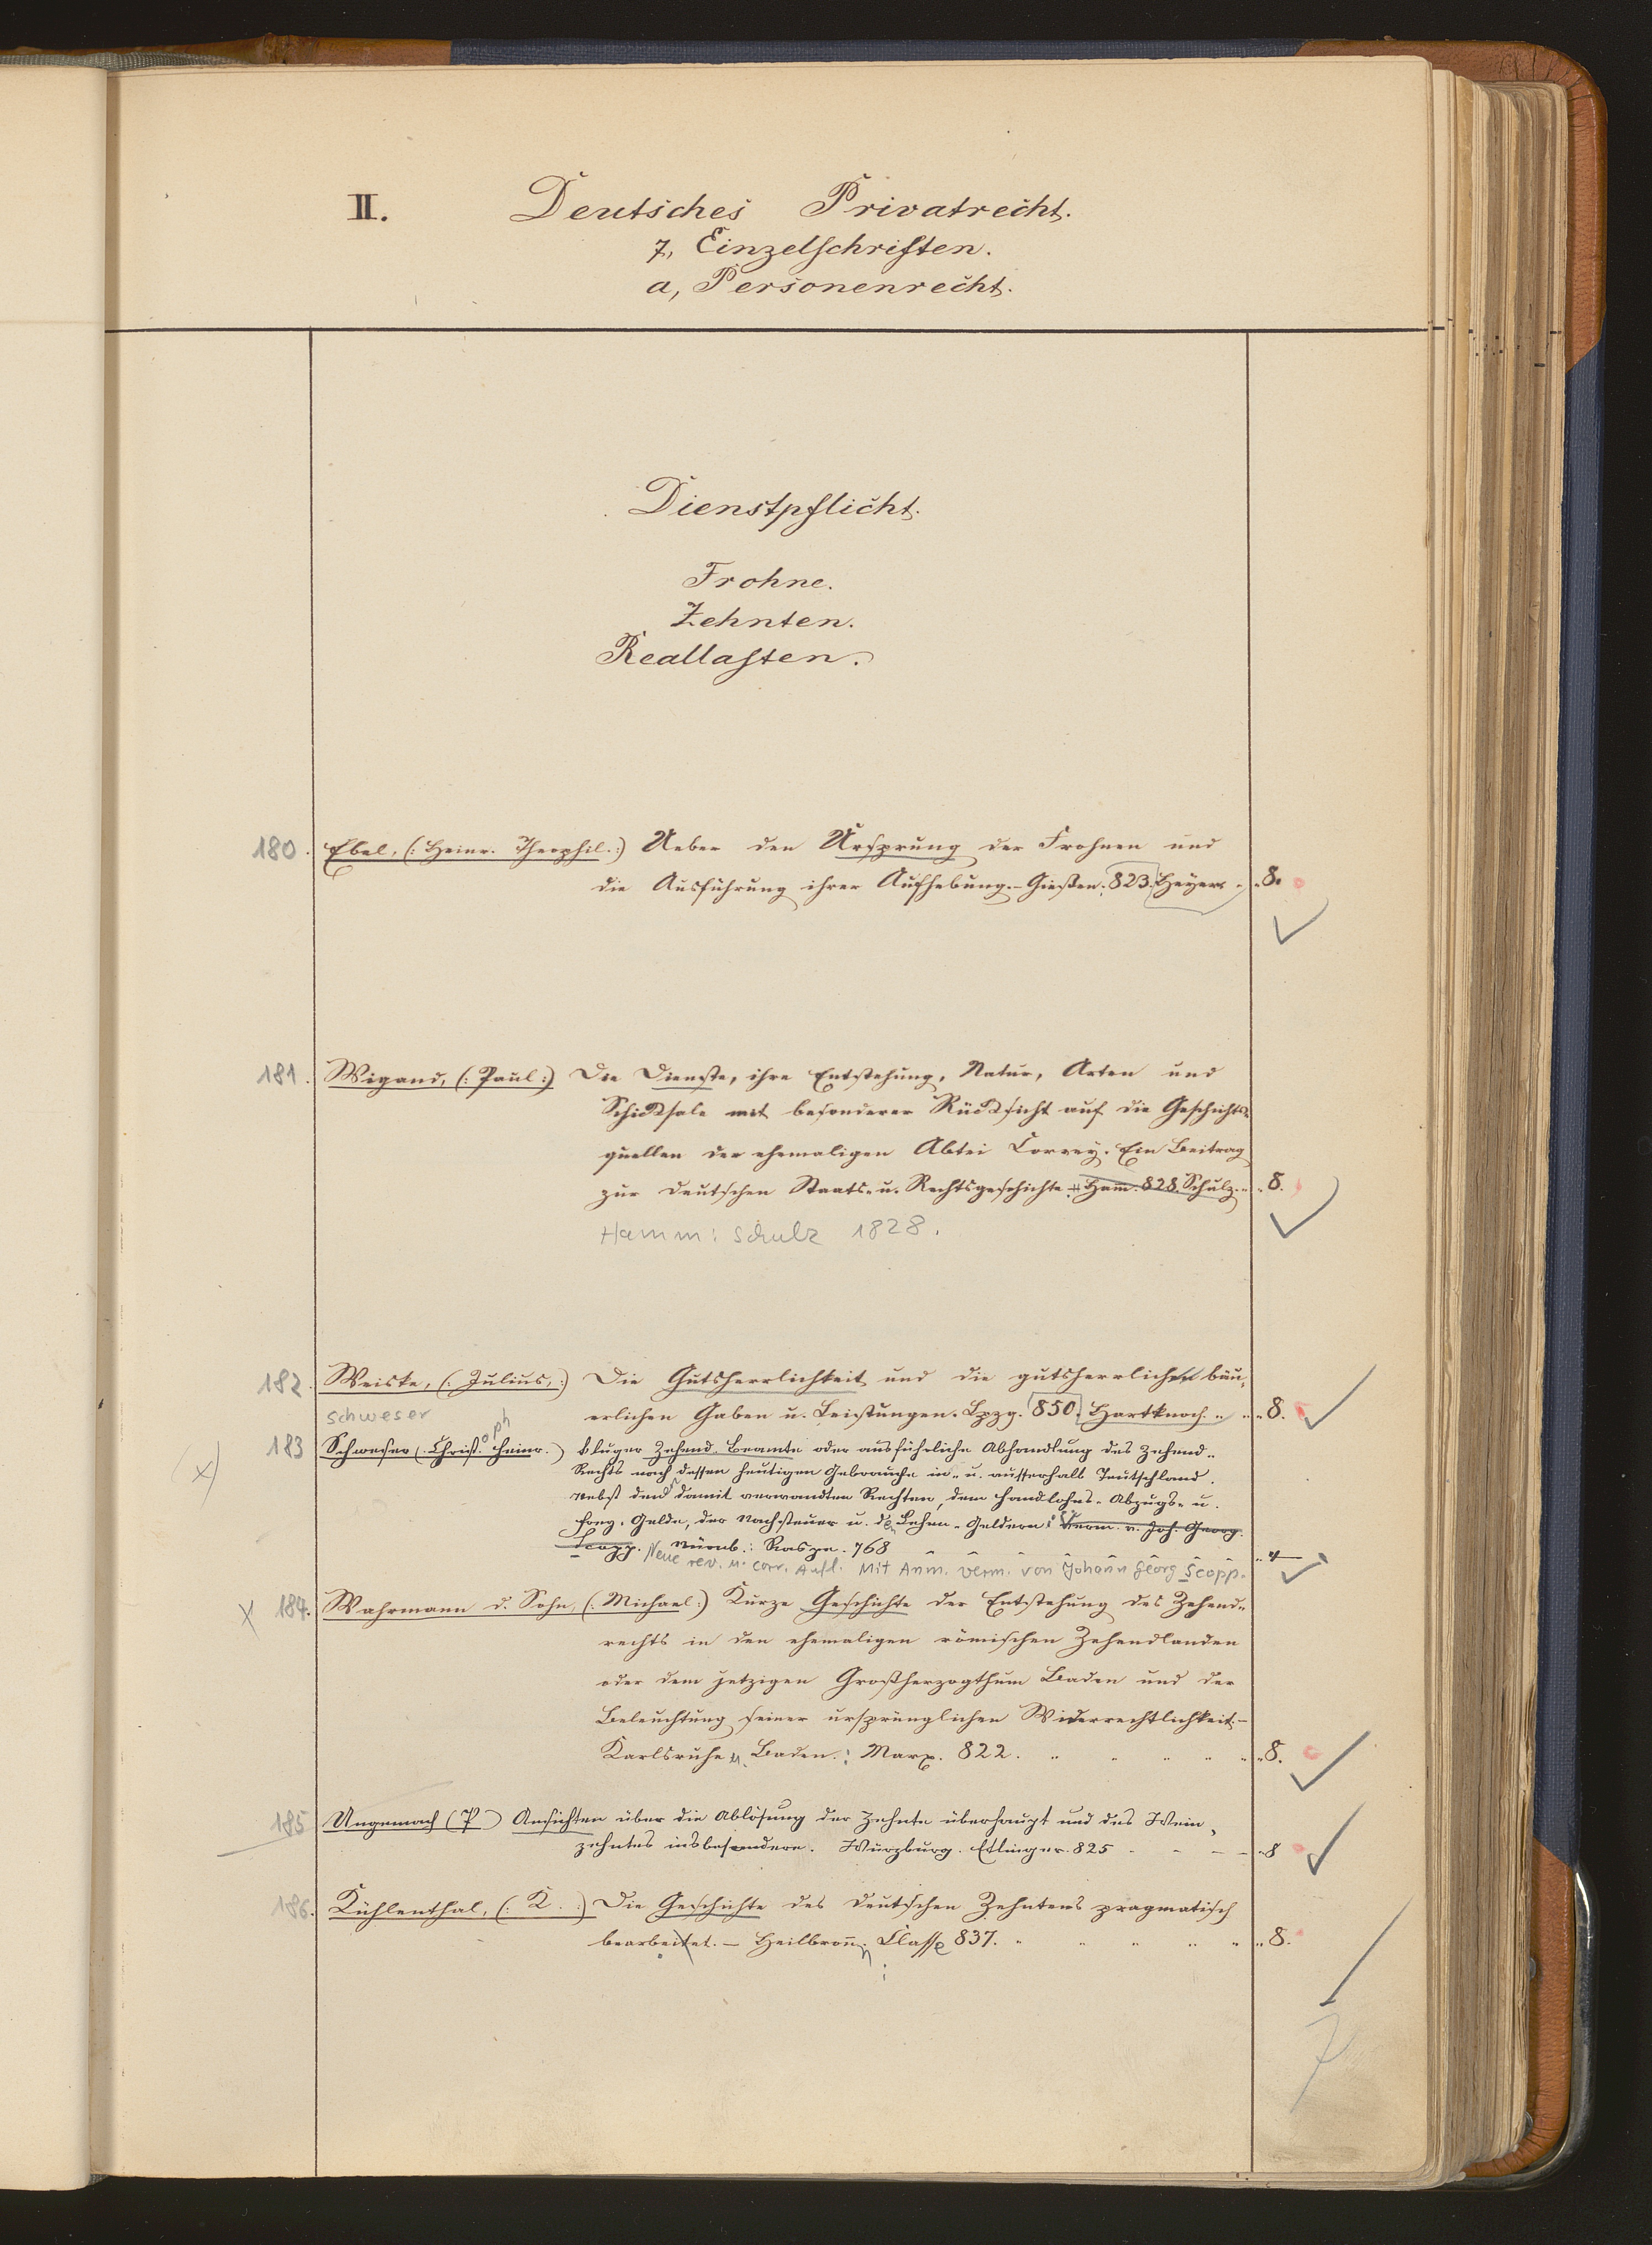 II. Deutsches Privatrecht.
7, Einzelschriften.
a, Personenrecht.
Dienstpflicht.
Frohne.
Zehnten.
Reallasten.
180. Ebel, (: Heinr. Theophil. :) Ueber den Ursprung der Frohnen und
die Ausführung ihrer Aufhebung. – Gießen. 823. Heyer. 8.
181. Wigand, (: Paul :) Die Dienste, ihre Entstehung, Natur, Arten und
Schicksale mit besonderer Rücksicht auf die Geschichts-
quellen der ehemaligen Abtei Corvey. Ein Beitrag
zur deutschen Staats- u. Rechtsgeschichte. Ham. 828. Schulz. 8.
Hamm: Schulz 1828.
182. Weiske, (: Julius, :) Die Gutsherrlichkeit und die gutsherrlichen bäu-
erlichen Gaben u. Leistungen. Lpzg. 850. Hartknoch. 8.
Schweser
183 Schweser (: Christoph Heinr. :) kluger Zehend-Beamte oder ausführliche Abhandlung des Zehend-
Rechts nach dessen heutigen Gebrauche in- u. ausserhalb Teutschland.
Nebst den damit verwandten Rechten, dem Handlohns- Abzugs- u.
Frey-Gelde, der Nachsteuer u. den Lehen-Geldern. Verm. v. Joh. Georg.
Scopp. Nürnb.: Raspe. 768 4
Neue rev. u. corr. Aufl. Mit Anm. verm. von Johann Georg Scopp.
x 184. Wahrmann d. Sohn, (: Michael :) Kurze Geschichte der Entstehung des Zehend-
rechts in den ehemaligen römischen Zehendlanden
oder dem jetzigen Großherzogthum Baden und der
Beleuchtung seiner ursprünglichen Widerrechtlichkeit. –
Karlsruhe u. Baden.: Marx. 822. 8.
185 Ungemach (P) Ansichten über die Ablösung der Zehnte überhaupt und des Wein-
zehntes insbesondere. Würzburg. Etlinger. 825 8
186. Kühlenthal, (: K. :) Die Geschichte des deutschen Zehntens pragmatisch
bearbeitet. – Heilbronn: Classe 837. 8.
7